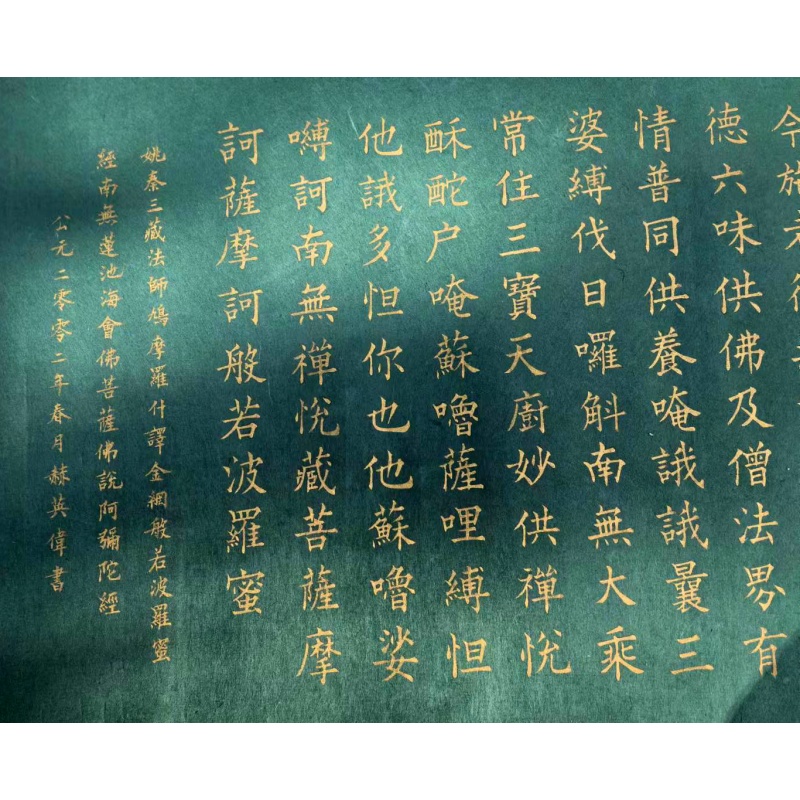 令施
德六味供佛及僧法界有
情普同供養唵誐誐曩三
婆縛伐日囉斛南無大乘
常住三寶天廚妙供禪悅
酥酡户唵蘇嚕薩哩縛怛
他誐多怛你也他蘇嚕娑
嚩訶南無禪悅藏菩薩摩
訶薩摩訶般若波羅蜜
姚秦三藏法師鳩摩羅什譯金剛般若波羅蜜
經南無蓮池海會佛菩薩佛說阿彌陀經
公元二零零二年春月赫英偉書